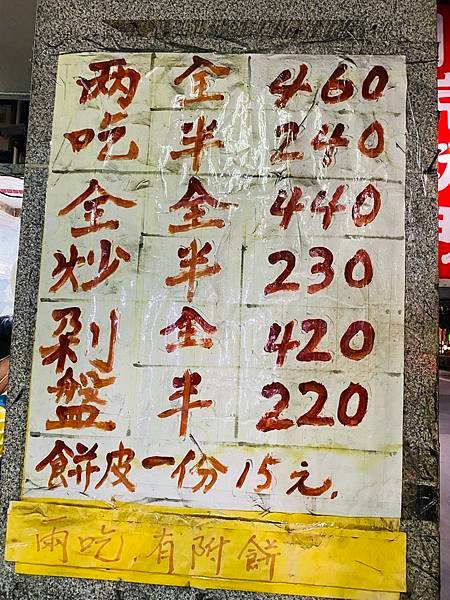 両 全 460
吃 半 240
全 全 440
炒 半 230
剁 全 420
盤 半 220
餅皮一份15元.
兩吃.有附餅